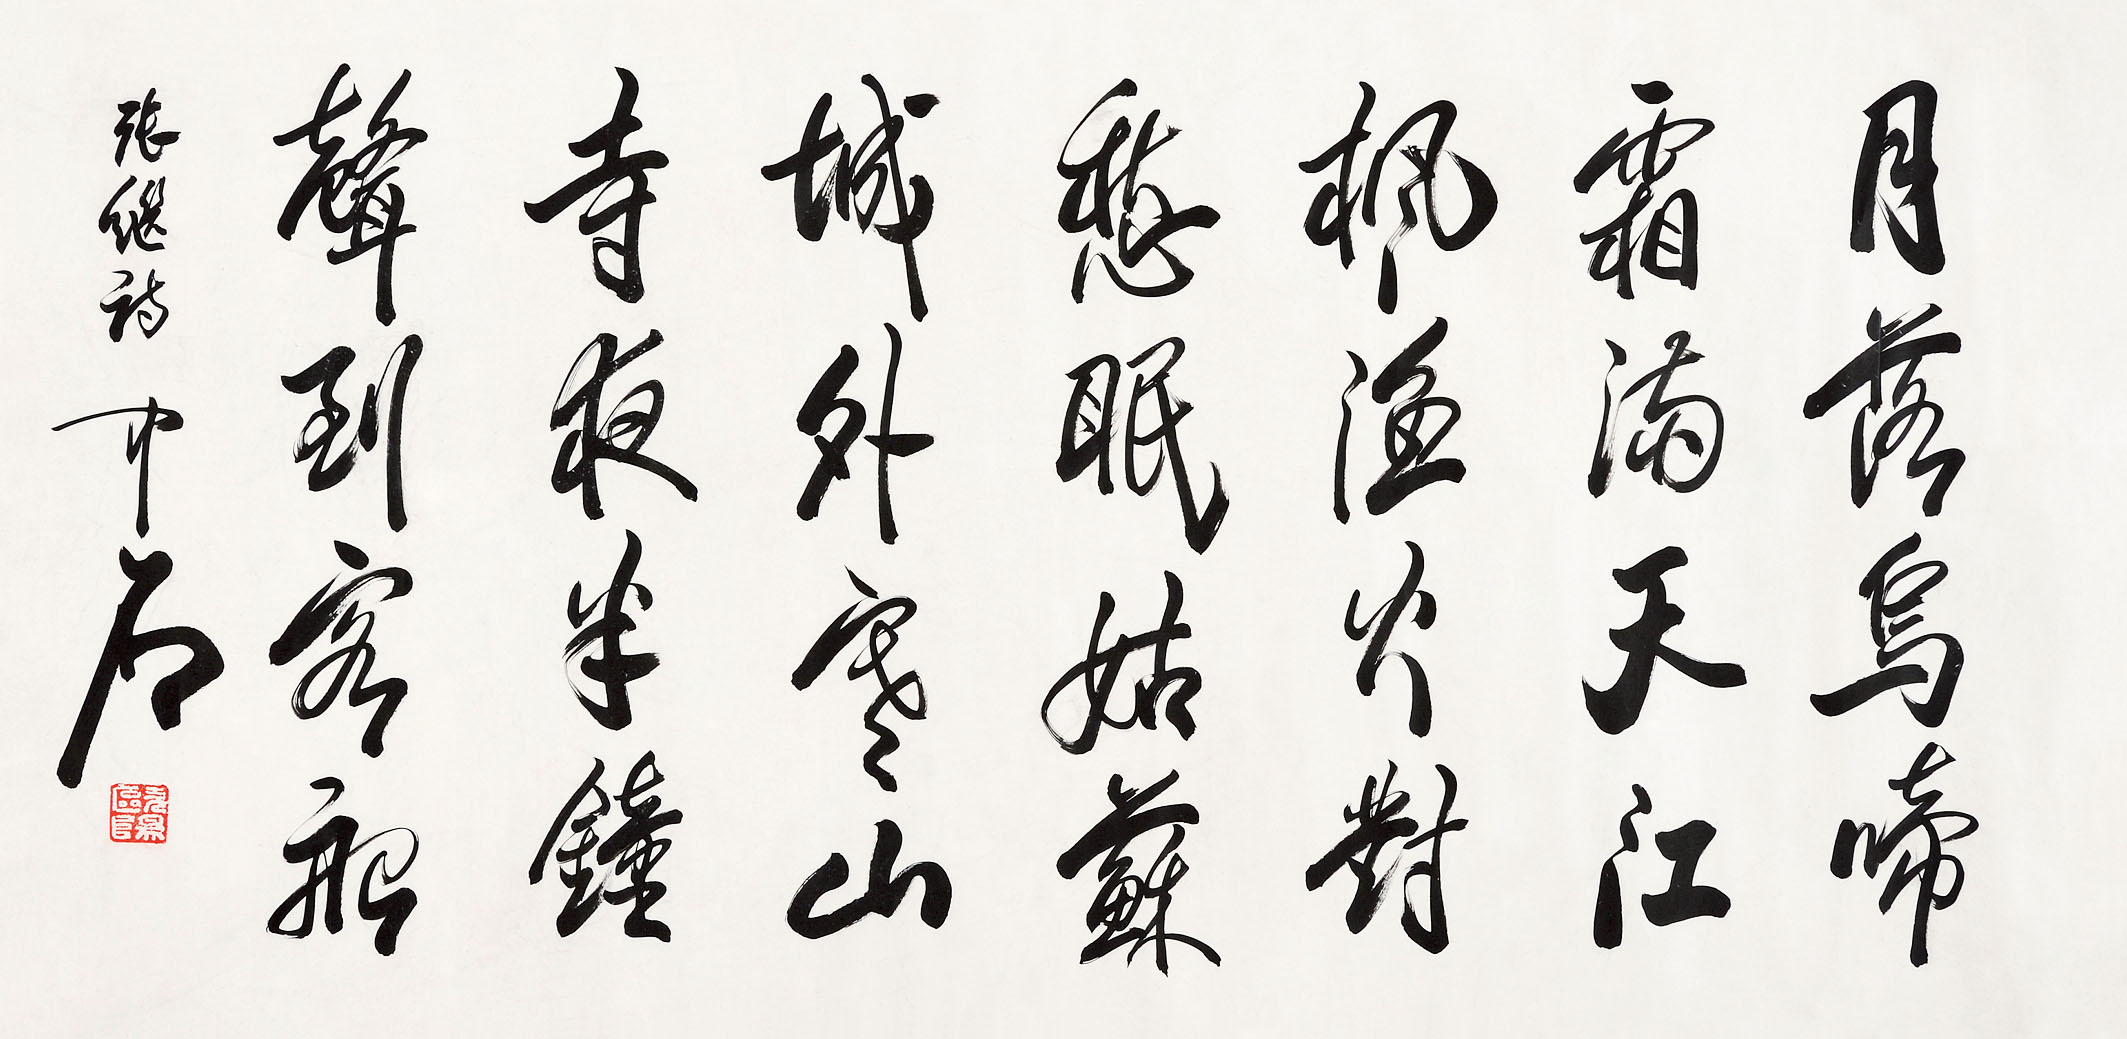 月落烏啼
霜滿天江
楓漁火對
愁眠姑蘇
城外寒山
寺夜半鐘
聲到客船
張繼詩 中石